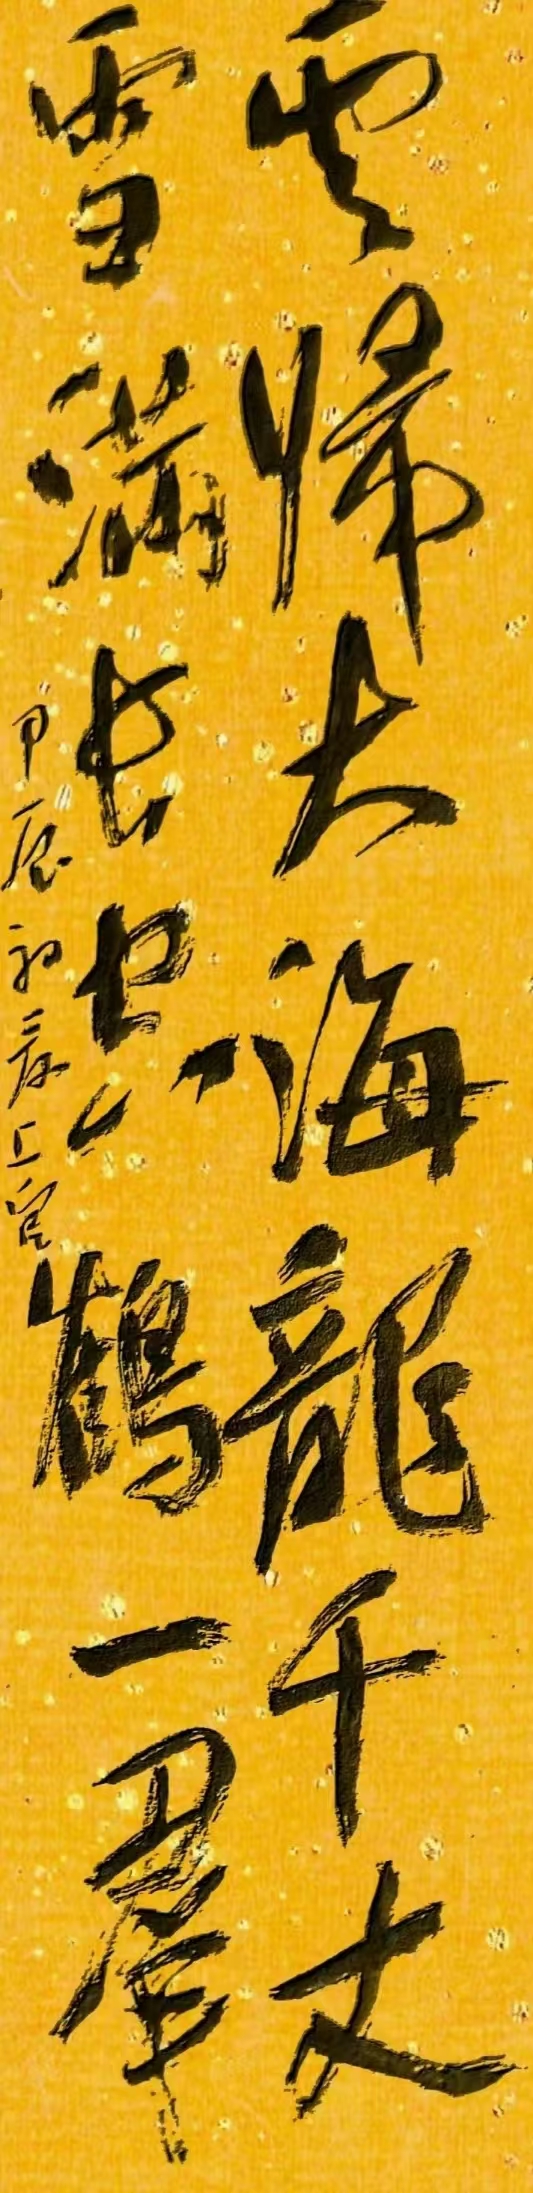 雲歸大海龍千丈
雪滿長空鶴一羣
甲辰初春上官